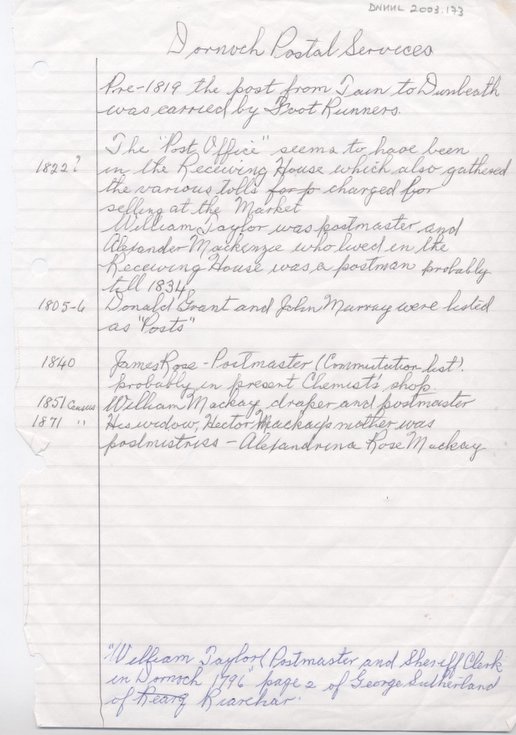 DNHHL 2003.173
Dornoch Postal Services
Pre-1819 the post from Tain to Dunbeath
was carried by Foot Runners.
The "Post Office" seems to have been
1822? in the Receiving House which also gathered
the various tolls charged for
selling at the Market
William Taylor was postmaster and
Alexander Mackenzie who lived in the
Receiving House was a postman probably
till 1834
1805-6 Donald Grant and John Murray were listed
as "Posts"
1840 James Rose - Postmaster (Commutution list).
probably in present Chemists shop
1851 Census William Mackay draper and postmaster
1871 " His widow, Hector Mackay's mother was
postmistress - Alexandrina Rose Mackay
"William Taylor Postmaster and Sheriff Clerk
in Dornoch 1796" page 2 of George Sutherland
of Rearq Riarchar.